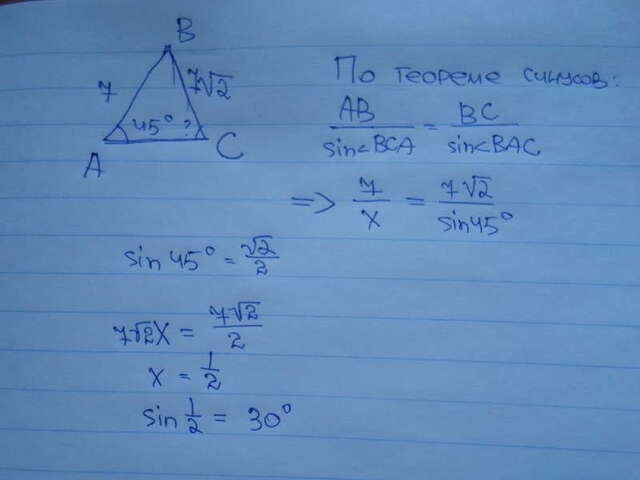 B
7
7√2
45°
?
A
C
По теореме синусов:
AB/sin<BCA = BC/sin<BAC
=> 7/x = 7√2/sin45°
sin 45° = √2/2
7√2x = 7√2/2
x = 1/2
sin 1/2 = 30°